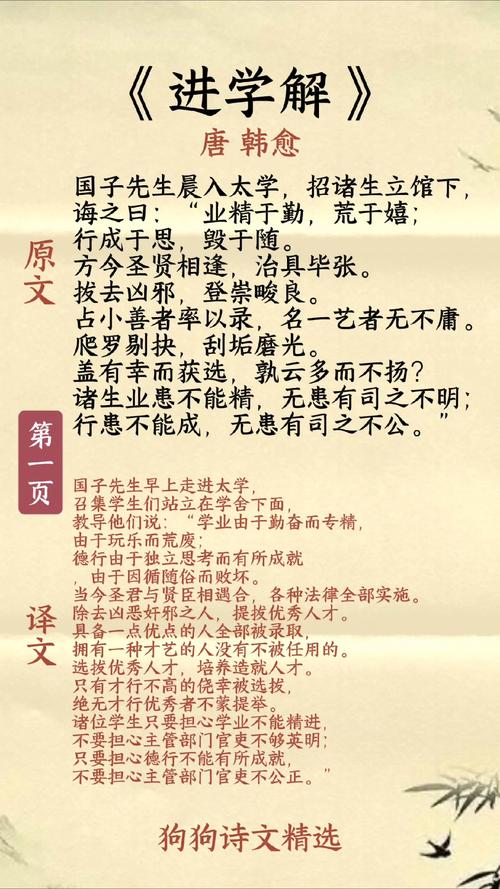 《进学解》
唐 韩愈
原文
国子先生晨入太学，招诸生立馆下，
诲之曰：“业精于勤，荒于嬉；
行成于思，毁于随。
方今圣贤相逢，治具毕张。
拔去凶邪，登崇畯良。
占小善者率以录，名一艺者无不庸。
爬罗剔抉，刮垢磨光。
盖有幸而获选，孰云多而不扬？
诸生业患不能精，无患有司之不明；
行患不能成，无患有司之不公。”
第一页
译文
国子先生早上走进太学，
召集学生们站立在学舍下面，
教导他们说：“学业由于勤奋而专精，
由于玩乐而荒废；
德行由于独立思考而有所成就
，由于因循随俗而败坏。
当今圣君与贤臣相遇合，各种法律全部实施。
除去凶恶奸邪之人，提拔优秀人才。
具备一点优点的人全部被录取，
拥有一种才艺的人没有不被任用的。
选拔优秀人才，培养造就人才。
只有才行不高的侥幸被选拔，
绝无才行优秀者不蒙提举。
诸位学生只要担心学业不能精进，
不要担心主管部门官吏不够英明；
只要担心德行不能有所成就，
不要担心主管部门官吏不公正。”
狗狗诗文精选